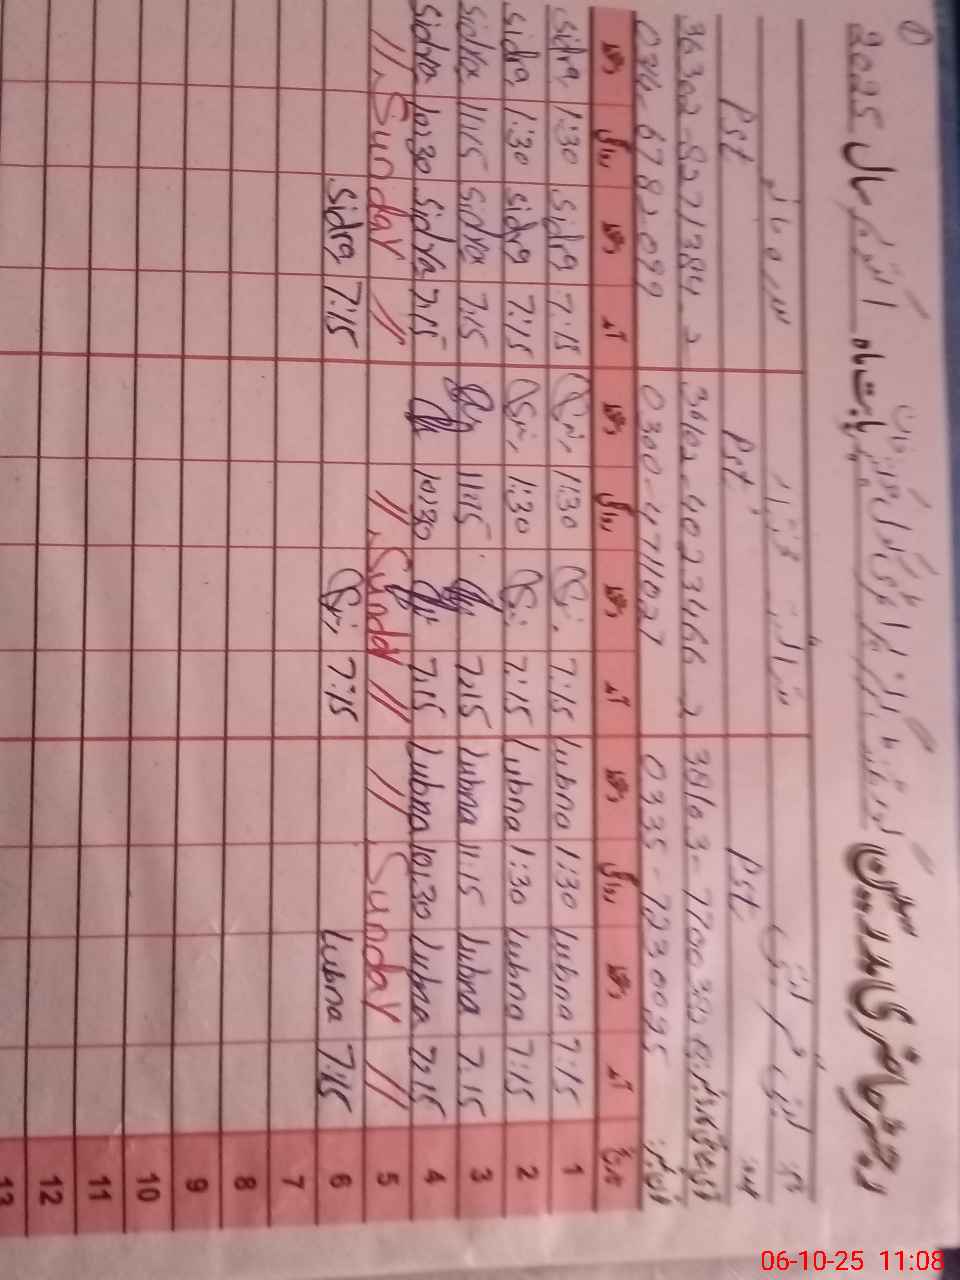 رجسٹر حاضری مدرسین گورنمنٹ گرلز پرائمری سکول بابت ماہ اکتوبر سال 2025
نام
عہدہ Pst Pst Pst
36302-8271384-2 36102-4023466-2
فون نمبر 0335-7230095 0300-4711027
تاریخ آمد دستخط روانگی دستخط آمد دستخط روانگی دستخط آمد دستخط روانگی دستخط
sidra 1:30 sidra 7:15 1:30 7:15 lubna 1:30 lubna 7:15 1
sidra 1:30 sidra 7:15 1:30 7:15 lubna 1:30 lubna 7:15 2
sidra 11:15 sidra 7:15 11:15 7:15 lubna 11:15 lubna 7:15 3
sidra 10:30 sidra 7:15 10:30 7:15 lubna 10:30 lubna 7:15 4
// Sunday // // Sunday // // Sunday // 5
sidra 7:15 7:15 lubna 7:15 6
7
8
9
10
11
12
13
06-10-25 11:08